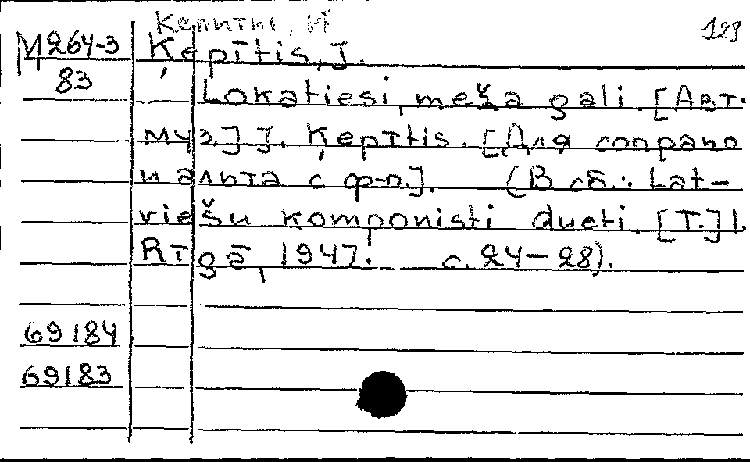 Кепитис, И
123
М264-3
83
Ķepītis, J.
Lokatiesi, meža gali. [Авт.
муз.] J. Ķepītis. [Для сопрано
и альта с ф-п.]. (В сб.: Lat-
viešu komponisti dueti. [T.] 1.
Rīgā, 1947. с. 24-28).
69184
69183